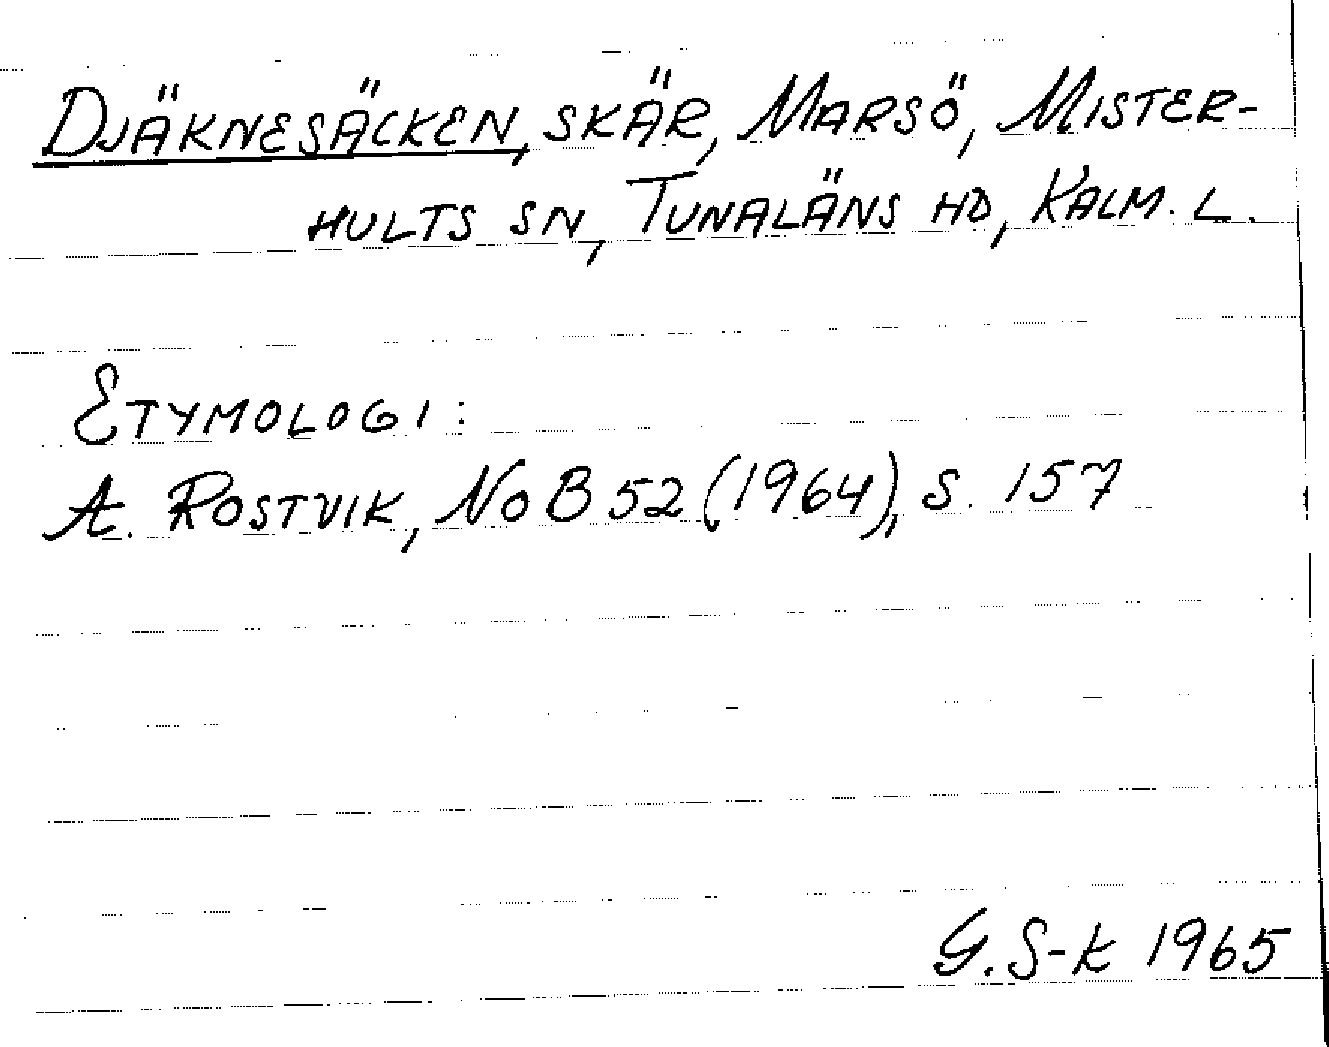 DJÄKNESÄCKEN, SKÄR, MARSÖ, MISTER-
HULTS SN, TUNALÄNS HD, KALM. L.
ETYMOLOGI:
A. ROSTVIK, NoB 52 (1964), S. 157
G. S-K 1965